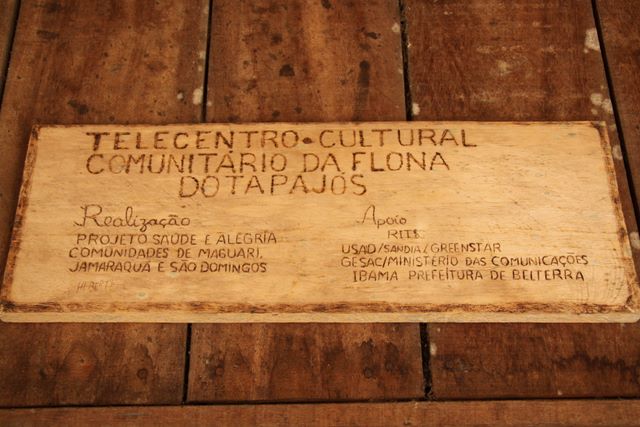 TELECENTRO • CULTURAL
COMUNITÁRIO DA FLONA
DO TAPAJÓS
Realização
PROJETO SAÚDE E ALEGRIA
COMUNIDADES DE MAGUARI,
JAMARAQUÁ E SÃO DOMINGOS
Apoio
RITS
USAID/SANDIA/GREENSTAR
GESAC/MINISTÉRIO DAS COMUNICAÇÕES
IBAMA PREFEITURA DE BELTERRA